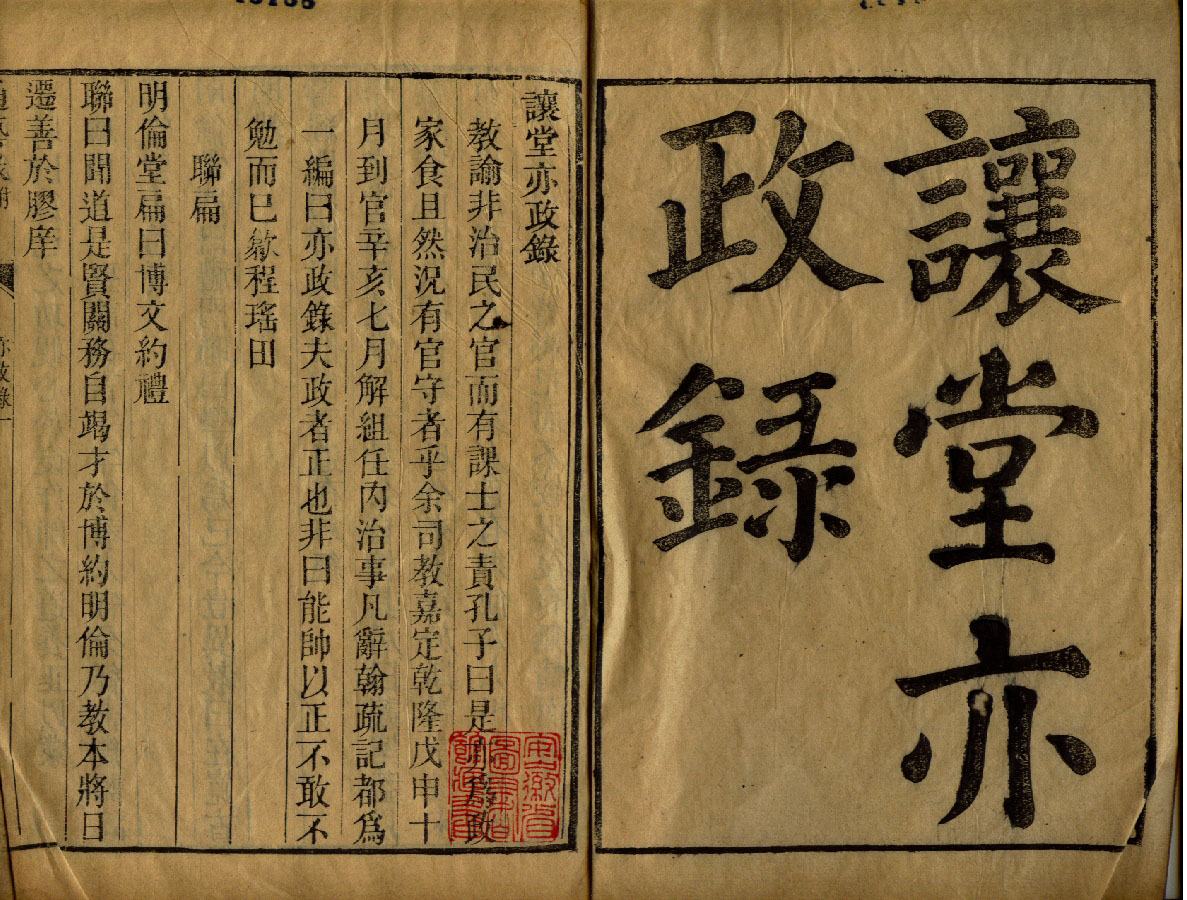 讓堂亦
政錄
讓堂亦政錄
教諭非治民之官而有課士之責孔子曰是亦爲政
家食且然況有官守者乎余司教嘉定乾隆戊申十
月到官辛亥七月解組任內治事凡辭翰疏記都爲
一編曰亦政錄夫政者正也非曰能帥以正不敢不
勉而已歙程瑤田
聯扁
明倫堂扁曰博文約禮
聯曰聞道是賢關務自竭才於博約明倫乃教本將日
遷善於膠庠
亦政錄一
安徽省
圖書館